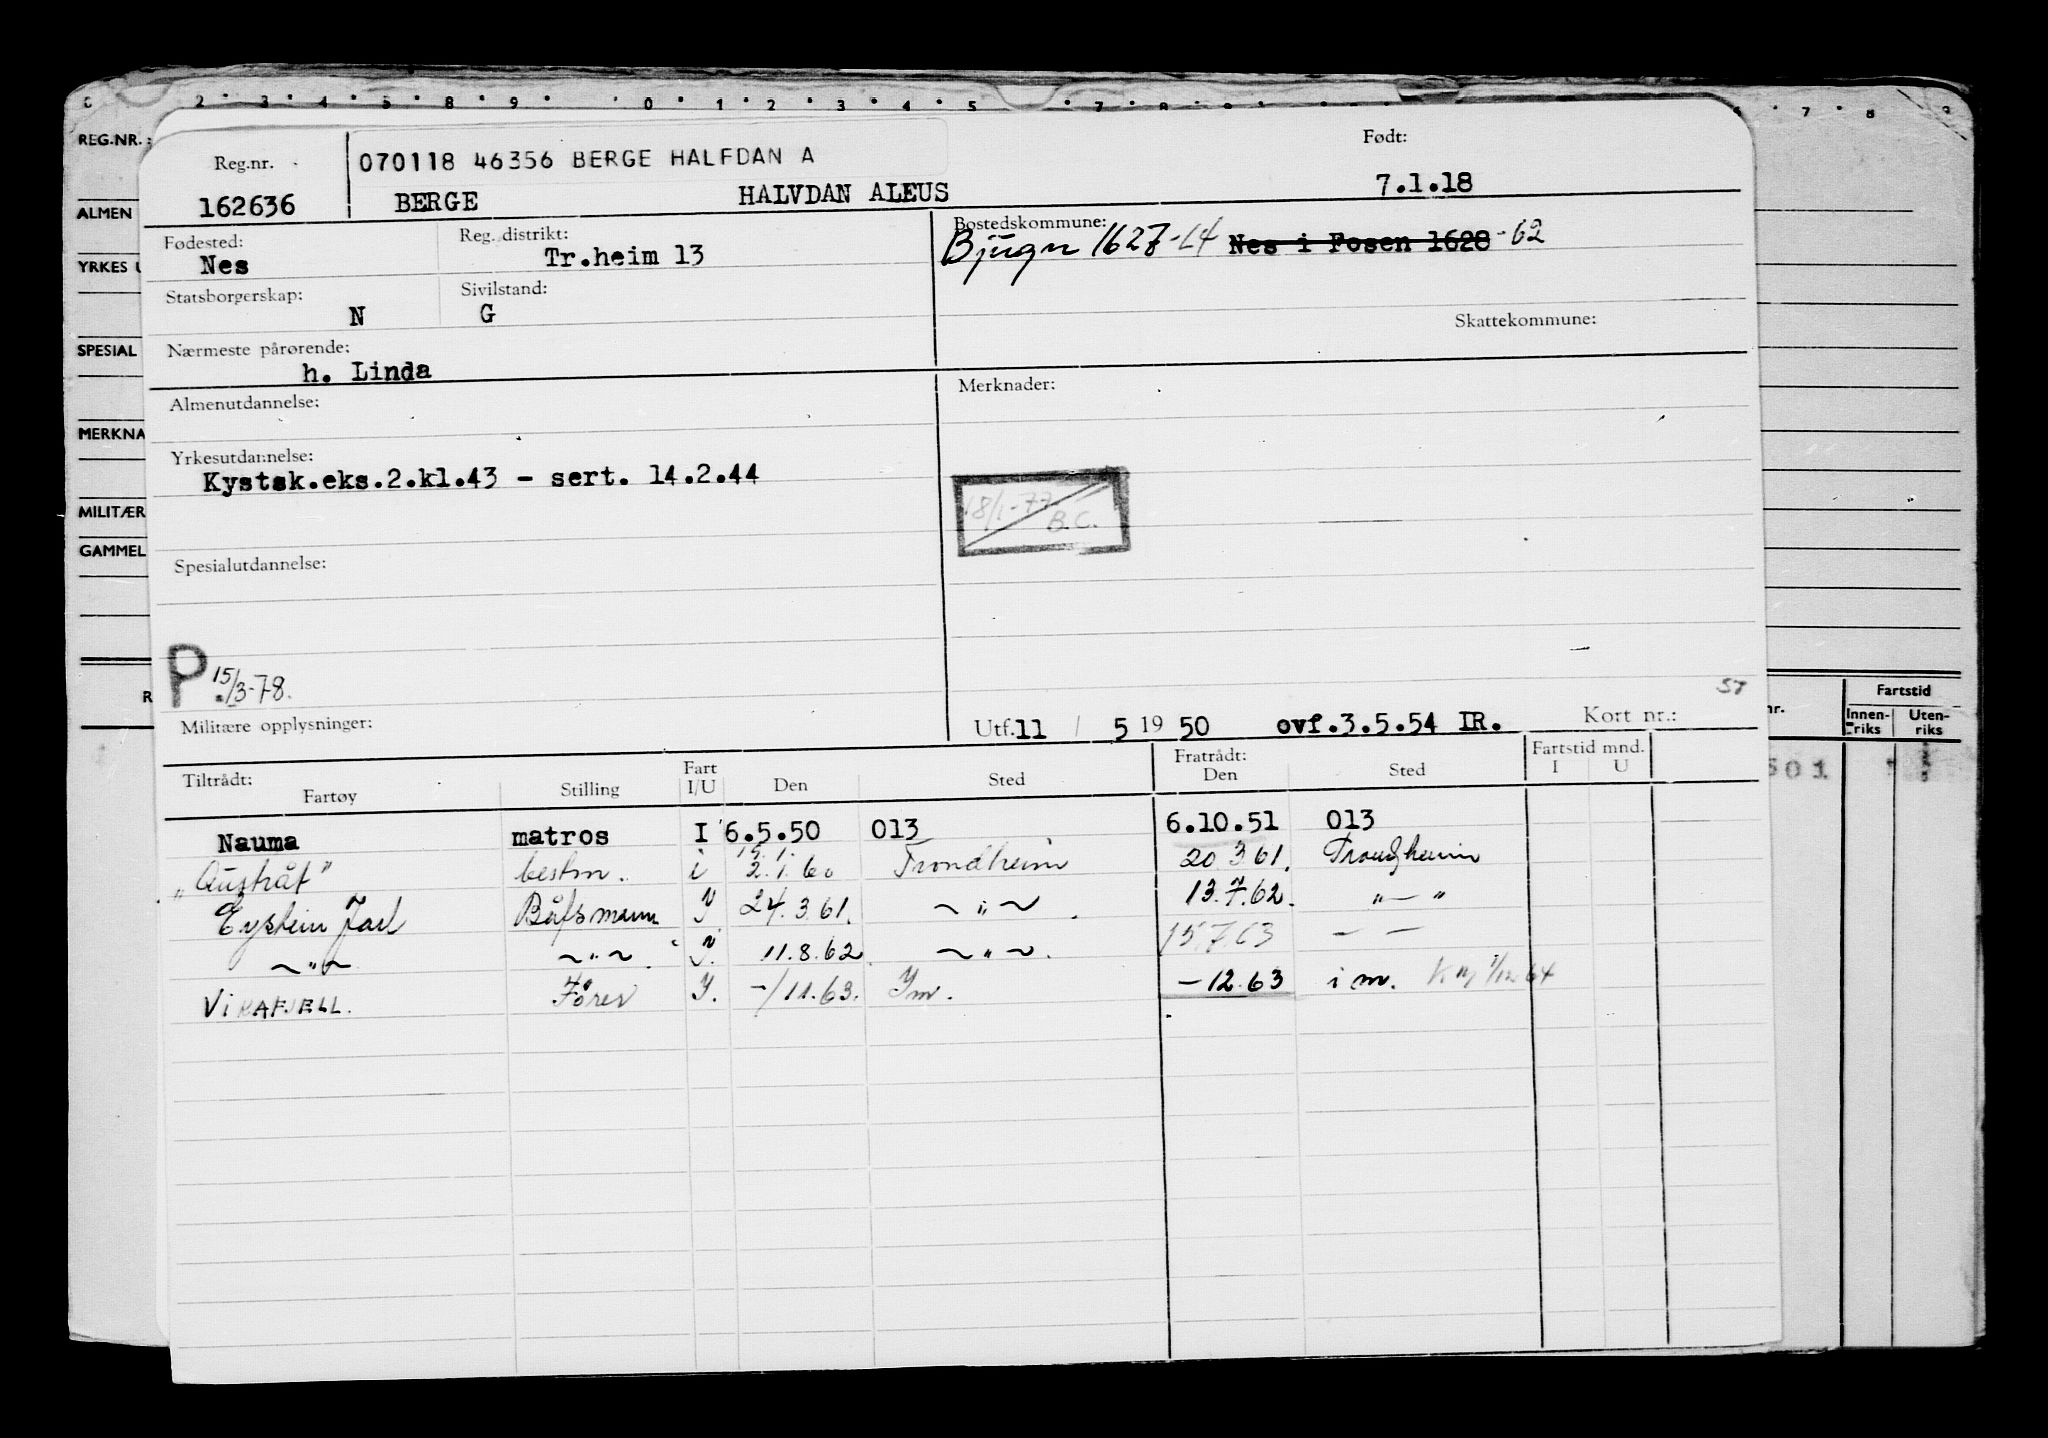 REG.NR.:
ALMEN
YRKES U
SPESIAL
MERKNA
MILITÆR
GAMMEL
R
Reg.nr.
162636
070118 46356 BERGE HALFDAN A
BERGE HALVDAN ALEUS
Født:
7.1.18
Fødested:
Nes
Reg. distrikt:
Tr.heim 13
Bostedskommune:
Bjugn 1627-64 Nes i Fosen 1628 -62
Statsborgerskap:
N
Sivilstand:
G
Skattekommune:
Nærmeste pårørende:
h. Linda
Almenutdannelse:
Merknader:
Yrkesutdannelse:
Kystsk.eks.2.kl.43 - sert. 14.2.44
18/1-77
B.C.
Spesialutdannelse:
P 15/3-78.
57
Militære opplysninger:
Utf.11 / 5 19 50 ovf.3.5.54 IR. Kort nr.:
Tiltrådt: Fratrådt: Fartstid mnd.
Fartøy Stilling Fart I/U Den Sted Den Sted I U
Nauma matros I 6.5.50 013 6.10.51 013
"Austråt" bestm. i 2.1.60 Trondheim 20 3 61. Trondheim
Eystein Jarl Båtsmann I 24.3.61. ~ " ~ 13.7.62. " — "
~ " ~ ~ " ~ I. 11.8.62. ~ " ~. 15.7.63 — —
VIKAFJELL. Fører I. -/11.63. Im. -12.63 i m. 1/12 64
nr.
Fartstid
Innen-
riks
Uten-
riks
501